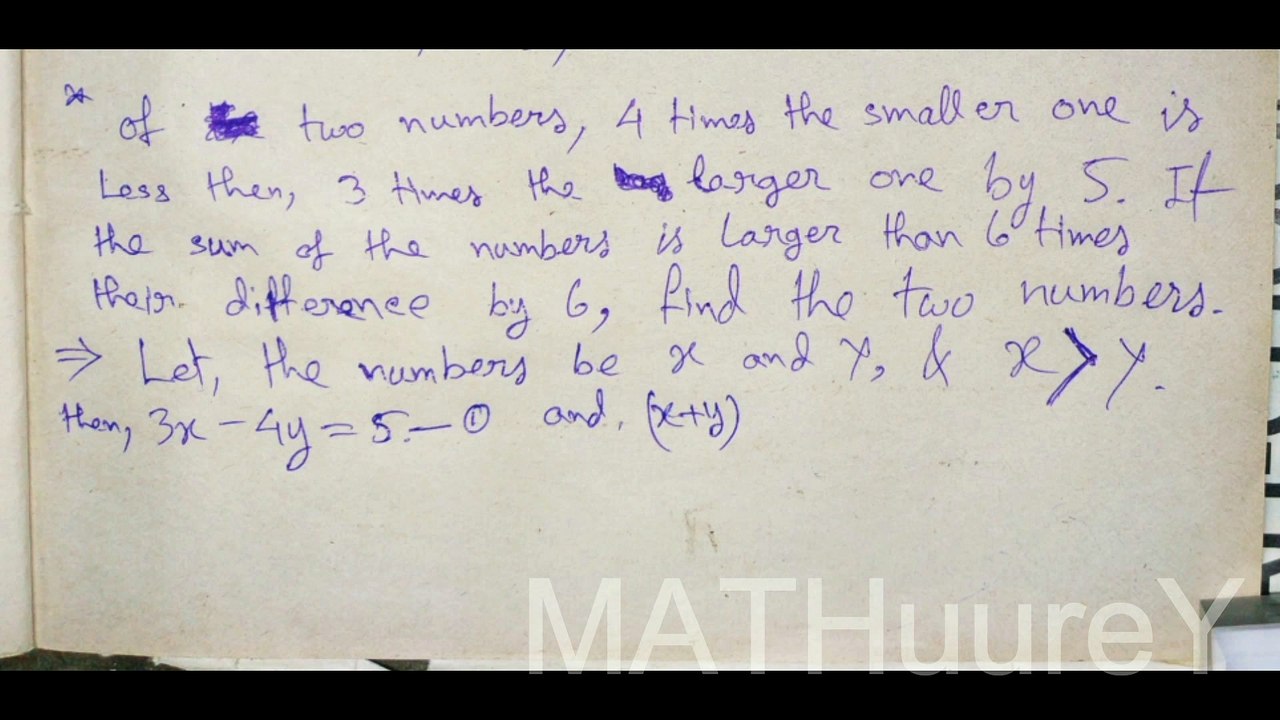 * Of two numbers, 4 times the smaller one is
Less then, 3 times the larger one by 5. If
the sum of the numbers is larger than 6 times
their difference by 6, find the two numbers.
⇒ Let, the numbers be x and y, & x > y.
then, 3x - 4y = 5. — ① and, (x+y)
MATHuureY